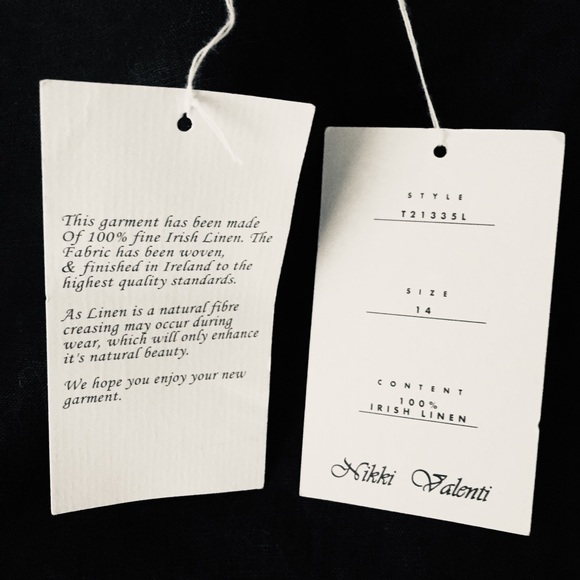 This garment has been made
Of 100% fine Irish Linen. The
Fabric has been woven,
& finished in Ireland to the
highest quality standards.
As Linen is a natural fibre
creasing may occur during
wear, which will only enhance
it's natural beauty.
We hope you enjoy your new
garment.
STYLE
T21335L
SIZE
14
CONTENT
100%
IRISH LINEN
Nikki Valenti